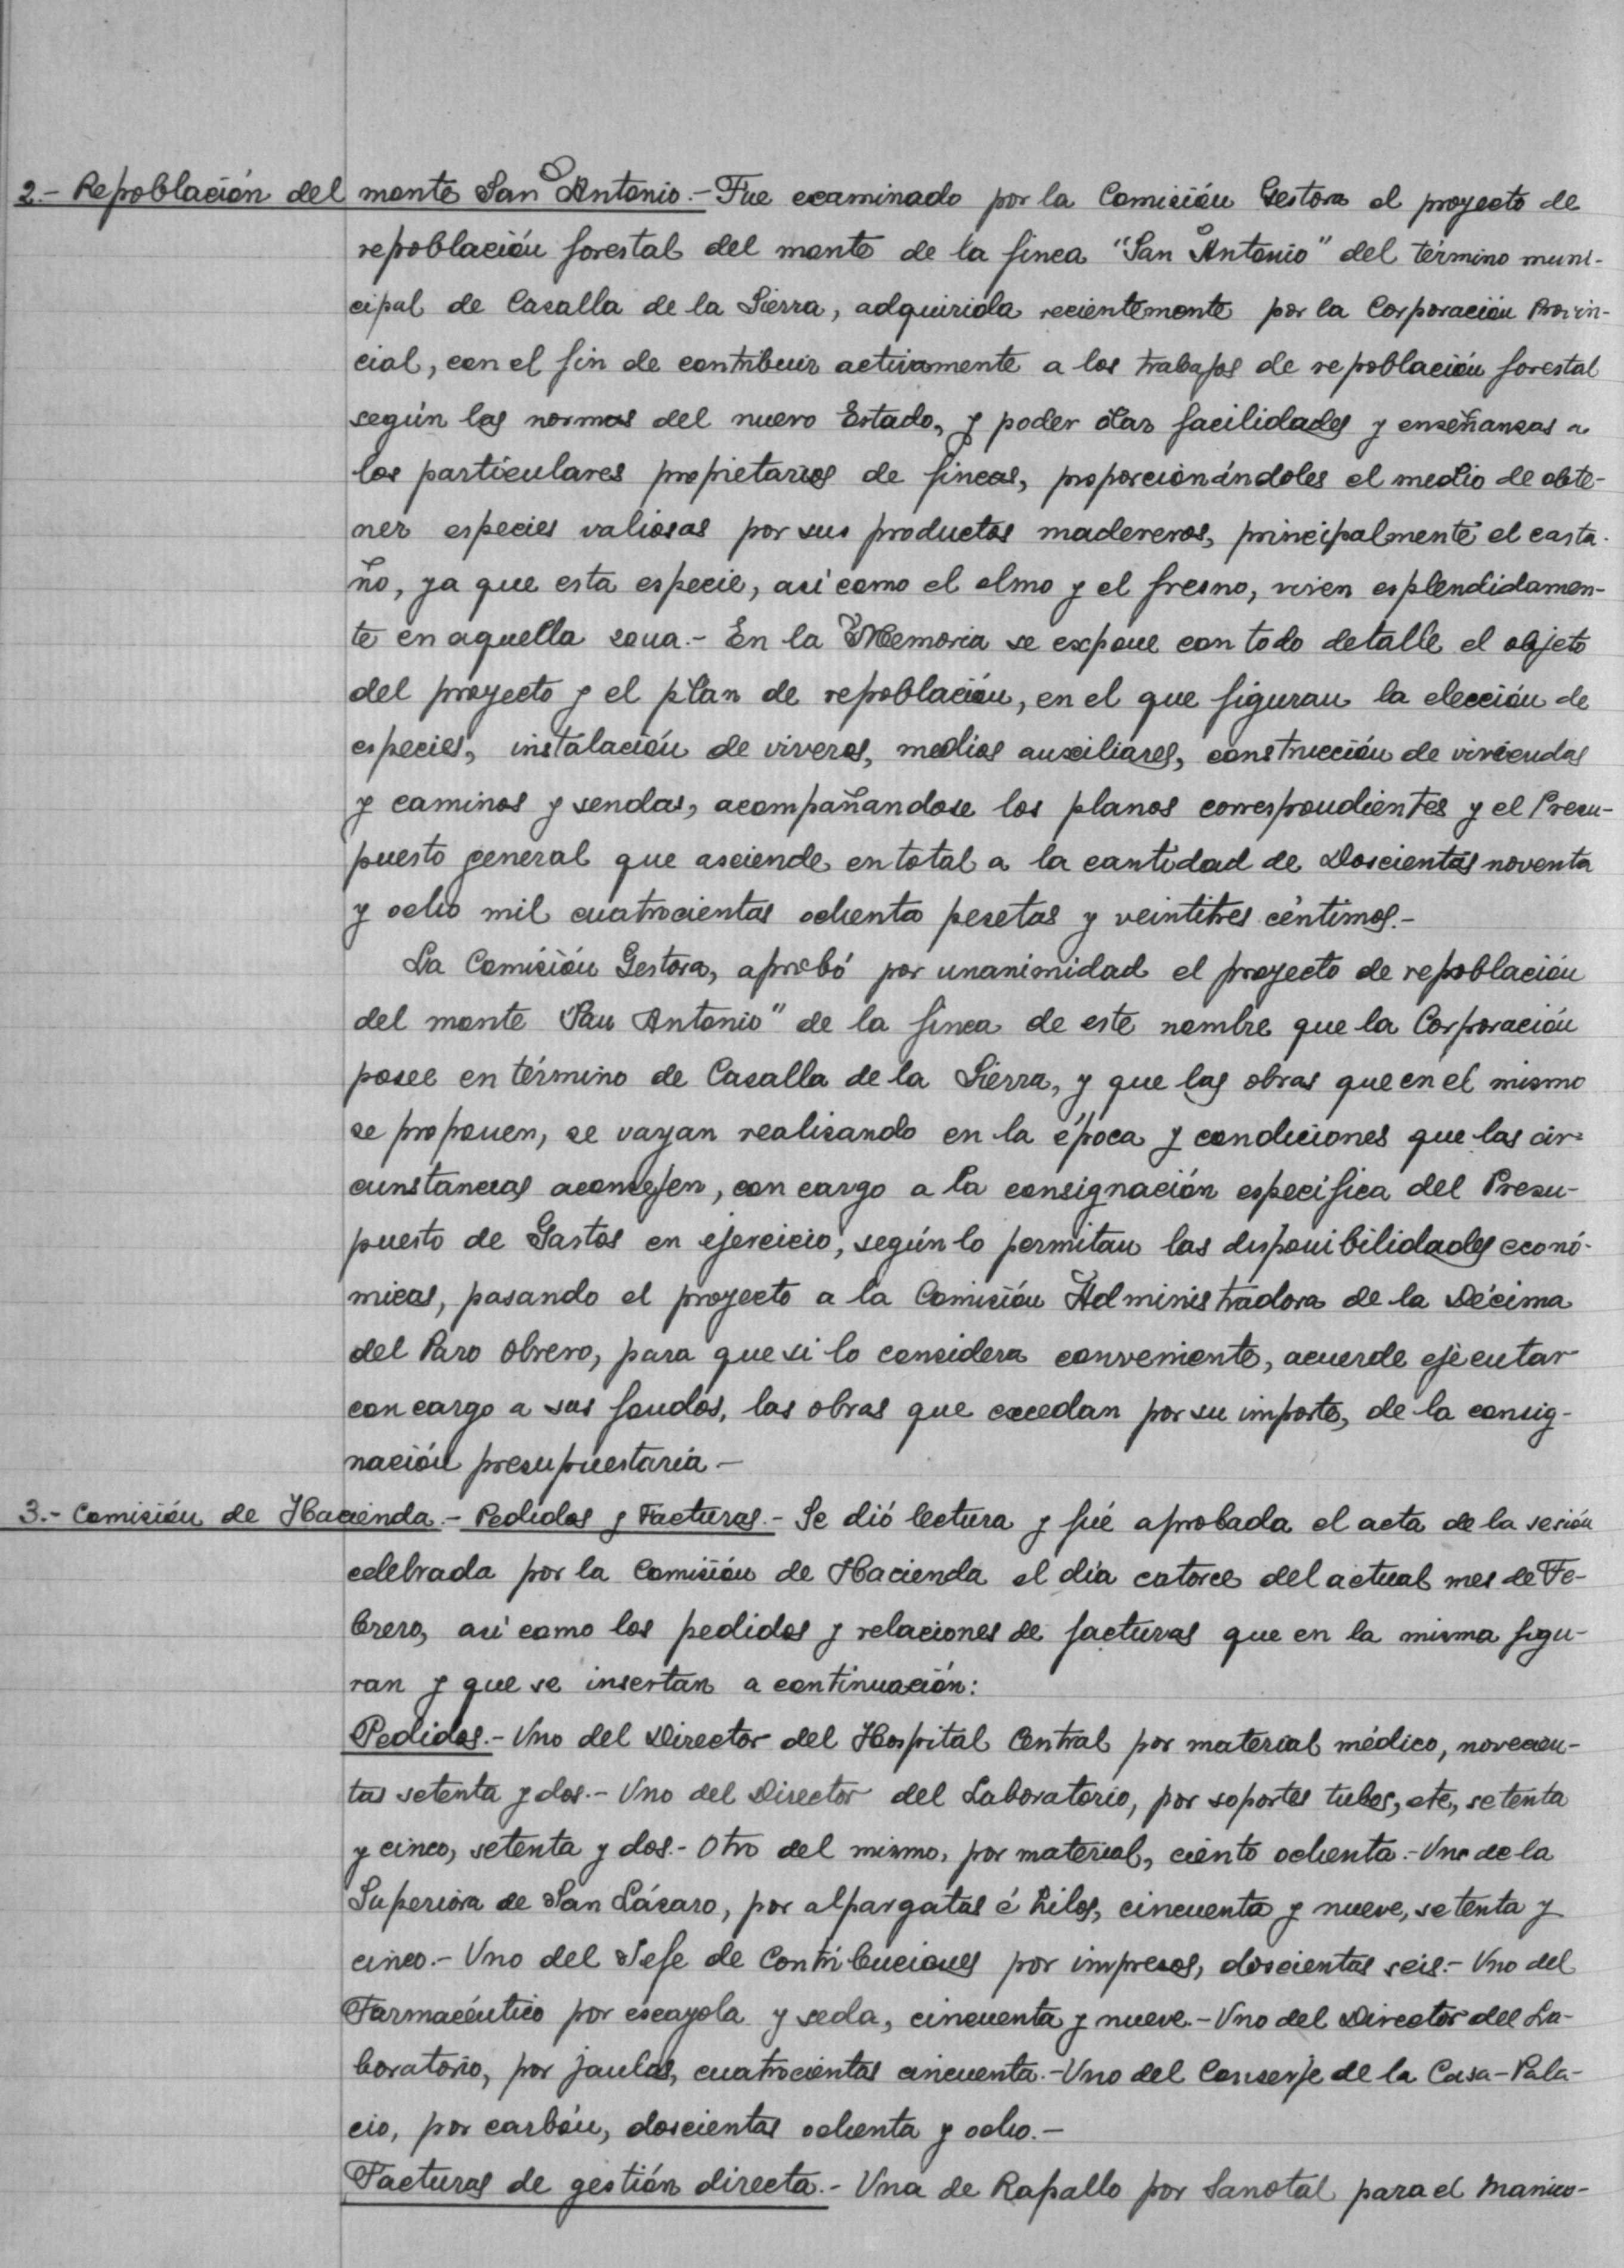 2.- Repoblación del monte San Antonio.- Fue examinado por la Comisión Gestora el proyecto de
repoblación forestal del monte de la finca "San Antonio" del término muni-
cipal de Cazalla de la Sierra, adquirida recientemente por la Corporación Provin-
cial, con el fin de contribuir activamente a los trabajos de repoblación forestal
según las normas del nuevo Estado, y poder dar facilidades y enseñanzas a
los particulares propietarios de fincas, proporcionándoles el medio de obte-
ner especies valiosas por sus productos madereros, principalmente el casta-
ño, ya que esta especie, así como el olmo y el fresno, viven esplendidamen-
te en aquella zona.- En la Memoria se expone con todo detalle el objeto
del proyecto y el plan de repoblación, en el que figuran la elección de
especies, instalación de viveros, medios auxiliares, construcción de viviendas
y caminos y sendas, acompañandose los planos correspondientes y el Presu-
puesto general que asciende en total a la cantidad de Doscientas noventa
y ocho mil cuatrocientas ochenta pesetas y veintitres céntimos.-
La Comisión Gestora, aprobó por unanimidad el proyecto de repoblación
del monte "San Antonio" de la finca de este nombre que la Corporación
posee en término de Cazalla de la Sierra, y que las obras que en él mismo
se proponen, se vayan realizando en la época y condiciones que las cir-
cunstancias aconsejen, con cargo a la consignación específica del Presu-
puesto de Gastos en ejercicio, según lo permitan las disponibilidades econó-
micas, pasando el proyecto a la Comisión Administradora de la Décima
del Paro Obrero, para que si lo considera conveniente, acuerde ejecutar
con cargo a sus fondos, las obras que excedan por su importe, de la consig-
nación presupuestaria.-
3.- Comisión de Hacienda.- Pedidos y Facturas.- Se dió lectura y fué aprobada el acta de la sesión
celebrada por la Comisión de Hacienda el día catorce del actual mes de Fe-
brero, así como los pedidos y relaciones de facturas que en la misma figu-
ran y que se insertan a continuación:
Pedidos.- Uno del Director del Hospital Central por material médico, novecien-
tas setenta y dos.- Uno del Director del Laboratorio, por soportes tubos, etc, setenta
y cinco, setenta y dos.- Otro del mismo, por material, ciento ochenta.- Uno de la
Superiora de San Lázaro, por alpargatas é hilos, cincuenta y nueve, setenta y
cinco.- Uno del Jefe de Contribuciones por impresos, doscientas seis.- Uno del
Farmacéutico por escayola y seda, cincuenta y nueve.- Uno del Director del La-
boratorio, por jaulas, cuatrocientas cincuenta.- Uno del Conserje de la Casa-Pala-
cio, por carbón, doscientas ochenta y ocho.-
Facturas de gestión directa.- Una de Rapallo por Sanotal para el Manico-